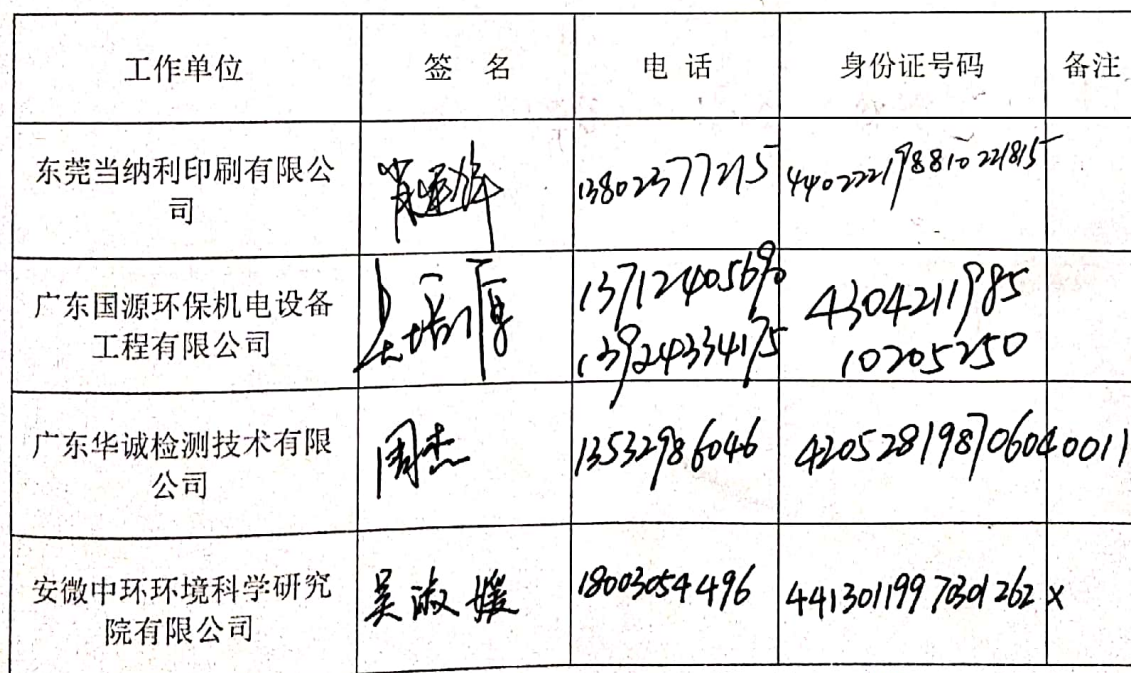 工作单位 签 名 电 话 身份证号码 备注
东莞当纳利印刷有限公
司
13802377215 440222198810221815
广东国源环保机电设备
工程有限公司
13712405690 4304211985
13924334175 10205250
广东华诚检测技术有限
公司
周杰 13532986046 420528198706040011
安微中环环境科学研究
院有限公司
吴淑媛 18003054496 44130119970301262x